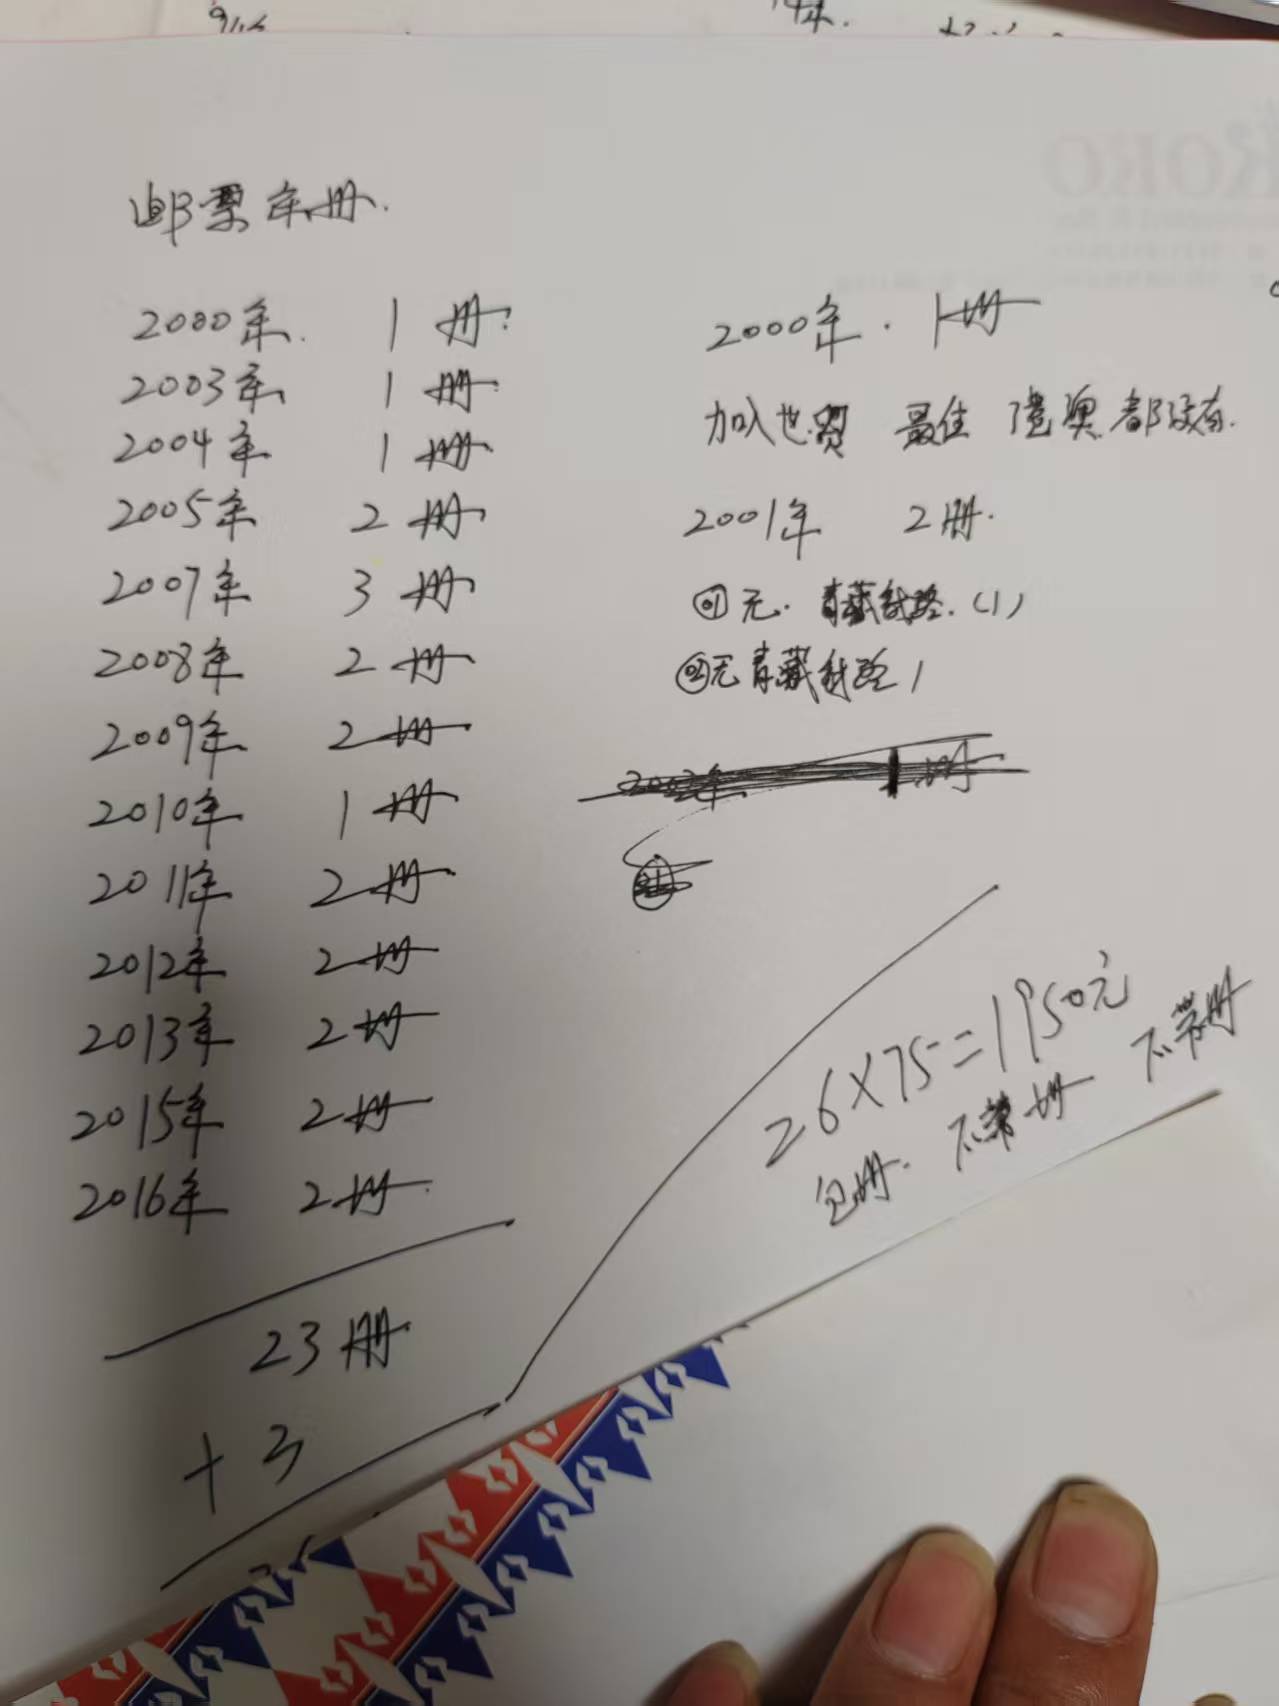 邮票年册.
2000年. 1册.
2003年 1册.
2004年 1册
2005年 2册
2007年 3册
2008年 2册
2009年 2册
2010年 1册
2011年 2册
2012年 2册
2013年 2册
2015年 2册
2016年 2册.
23册
+3
2000年. 1册
加入世贸 最佳 港澳都没有.
2001年 2册.
01无. 青藏铁路.(1)
02无青藏铁路1
26×75=1950元
包册. 不带册 不带册
ROKO